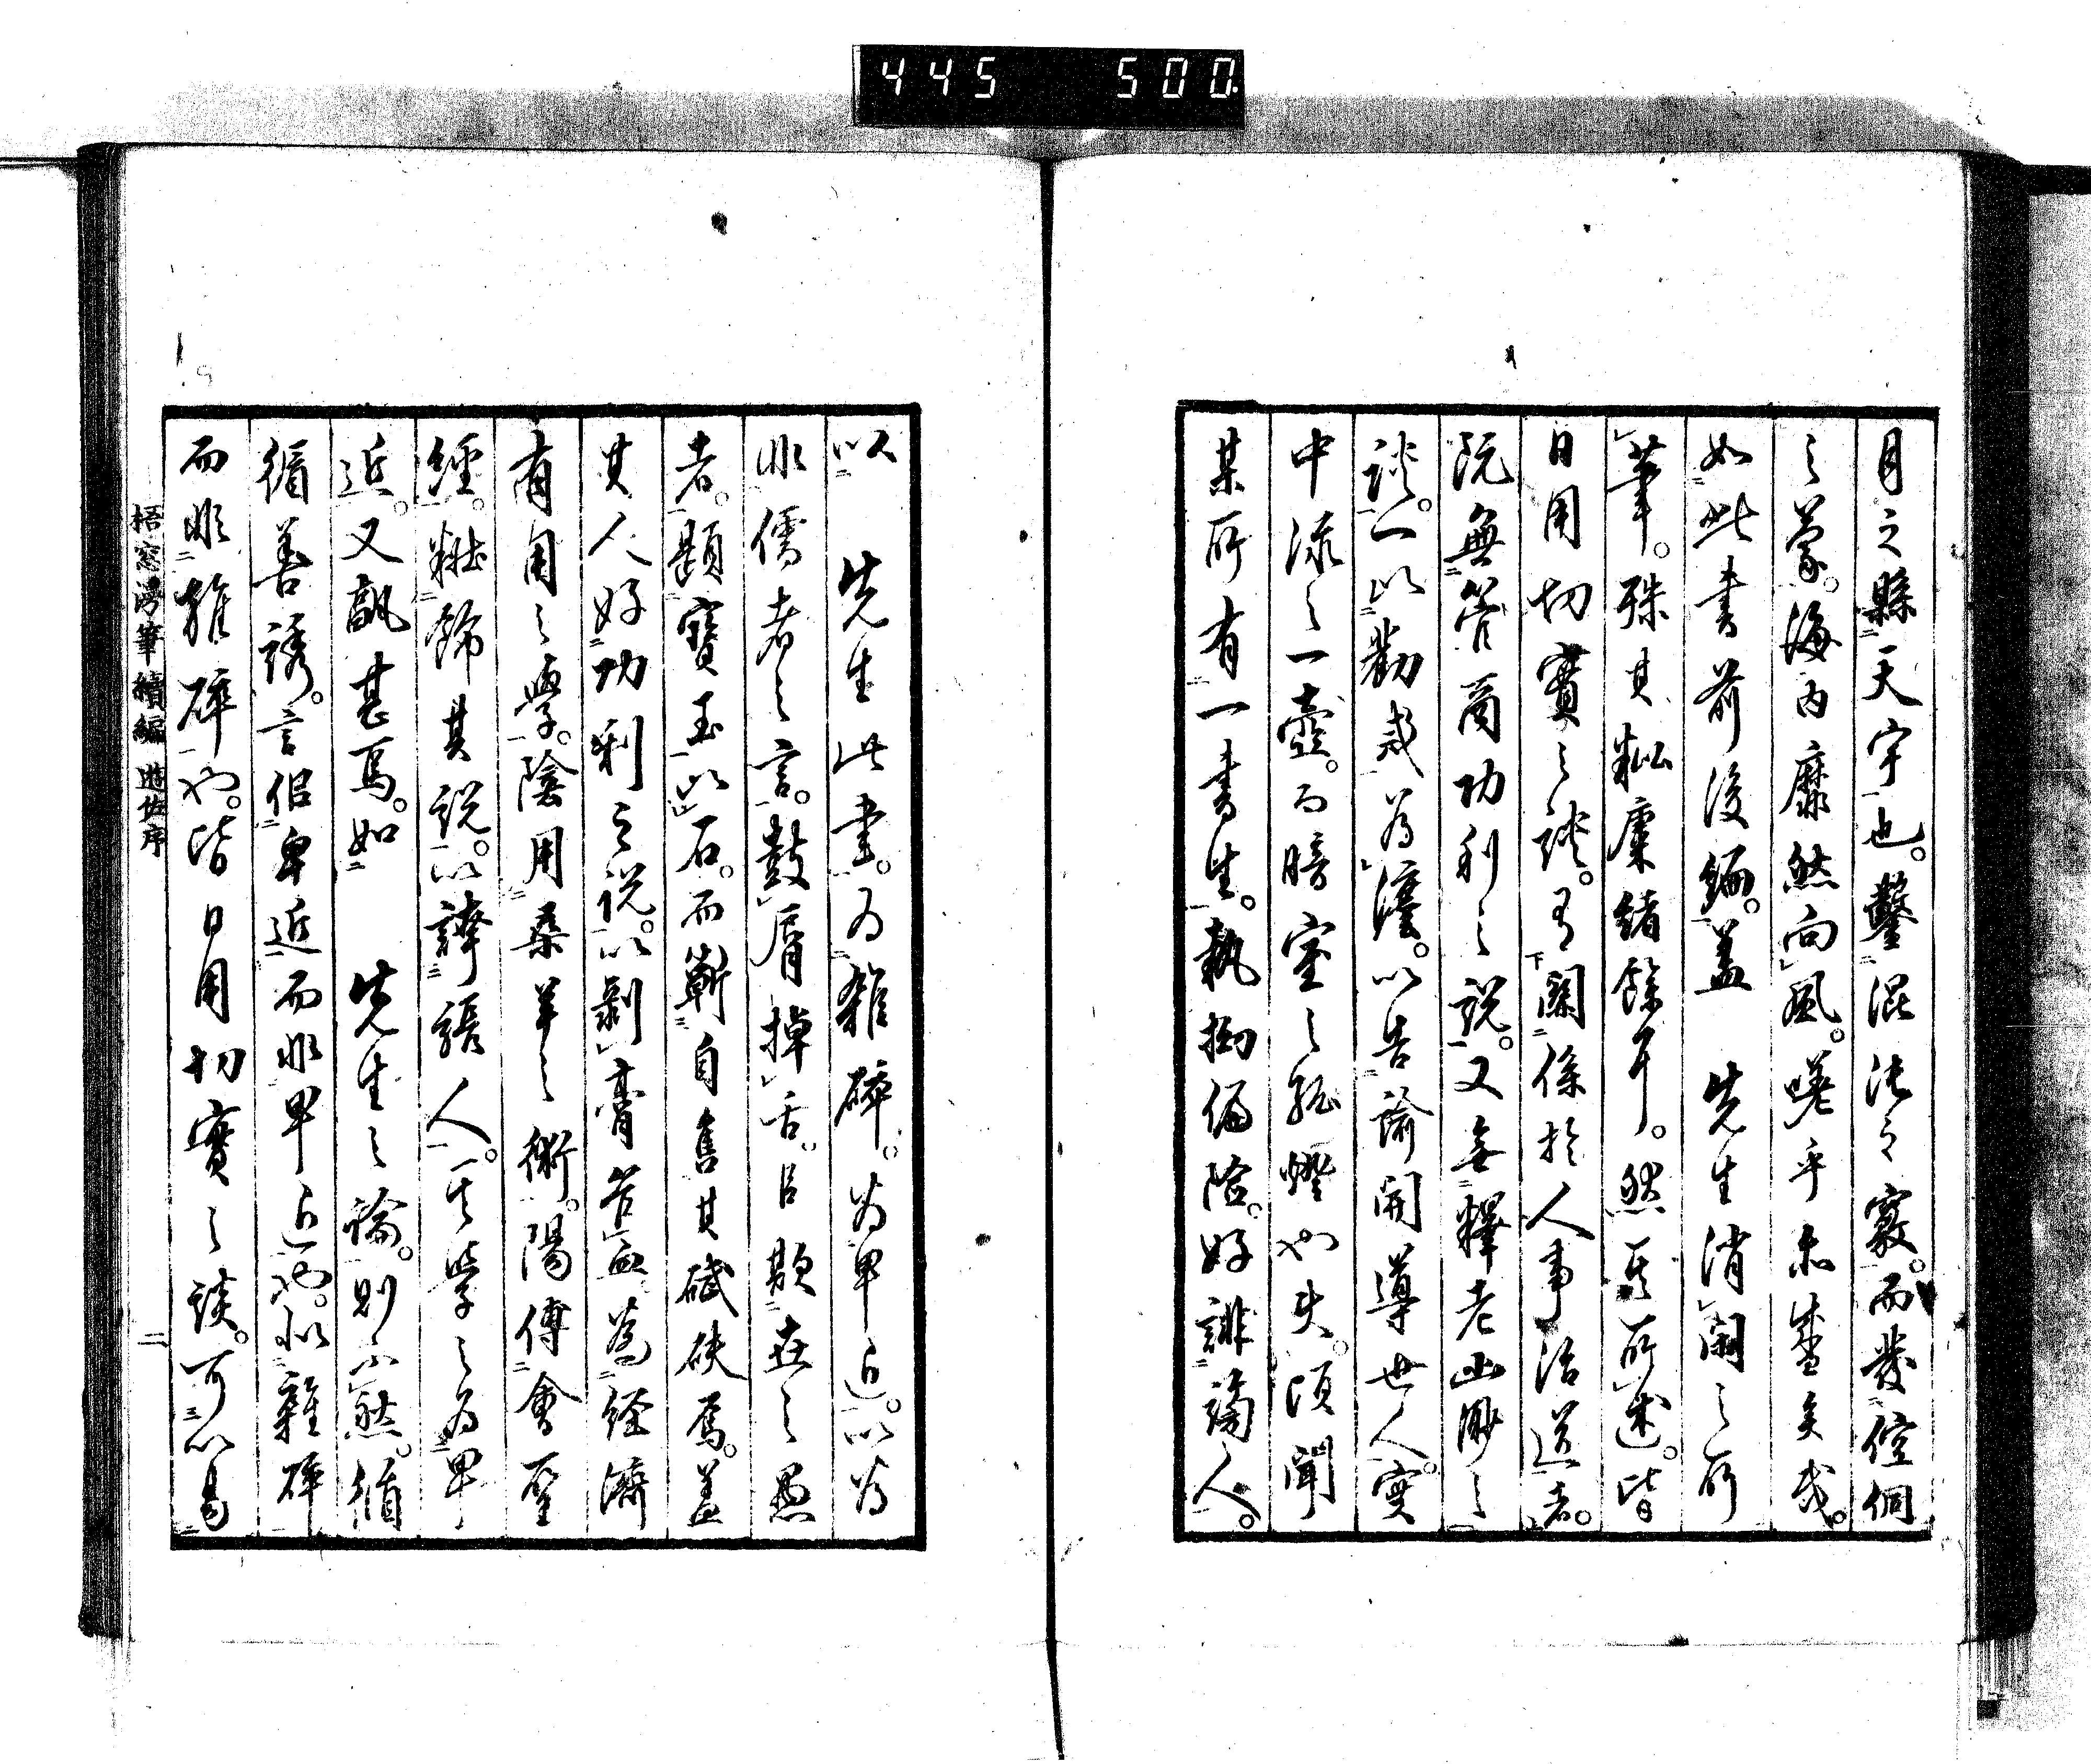 445 500.
月之縣天宇也。鑿混沌之竅。而發倥侗
之蒙。海內靡然向風。嗟乎亦盛矣哉。
如此書前後編。蓋 先生消閑之所
筆。殊其粃糠緒餘耳。然其所述。皆
日用切實之談。有關係於人事治道者。
既無管商功利之說。又無釋老幽眇之
談。一以勸戒為僕。以告諭開導世人。實
中流之一壺。而暗室之孤燈也夫。頃聞
某所有一書生。執拗偏陰。好誹謗人。
以 先生此書。為雜碎。為卑近。以為
非儒者之言。鼓脣掉舌。以欺世之愚
者。題寶玉以石。而蘄自售其碔砆焉。蓋
其人好功利之說。以剝膏咎血為經濟
有用之學。陰用桑羊之術。陽傅會聖
經。粧飾其說。以譸張人。其學之為卑
近。又孰甚焉。如 先生之論。則不然。循
循善誘。言侶卑近而非卑近也。似雜碎
而非雜碎也。皆日用切實之談。可以易
梧窓漫筆續編 遊佐序 二